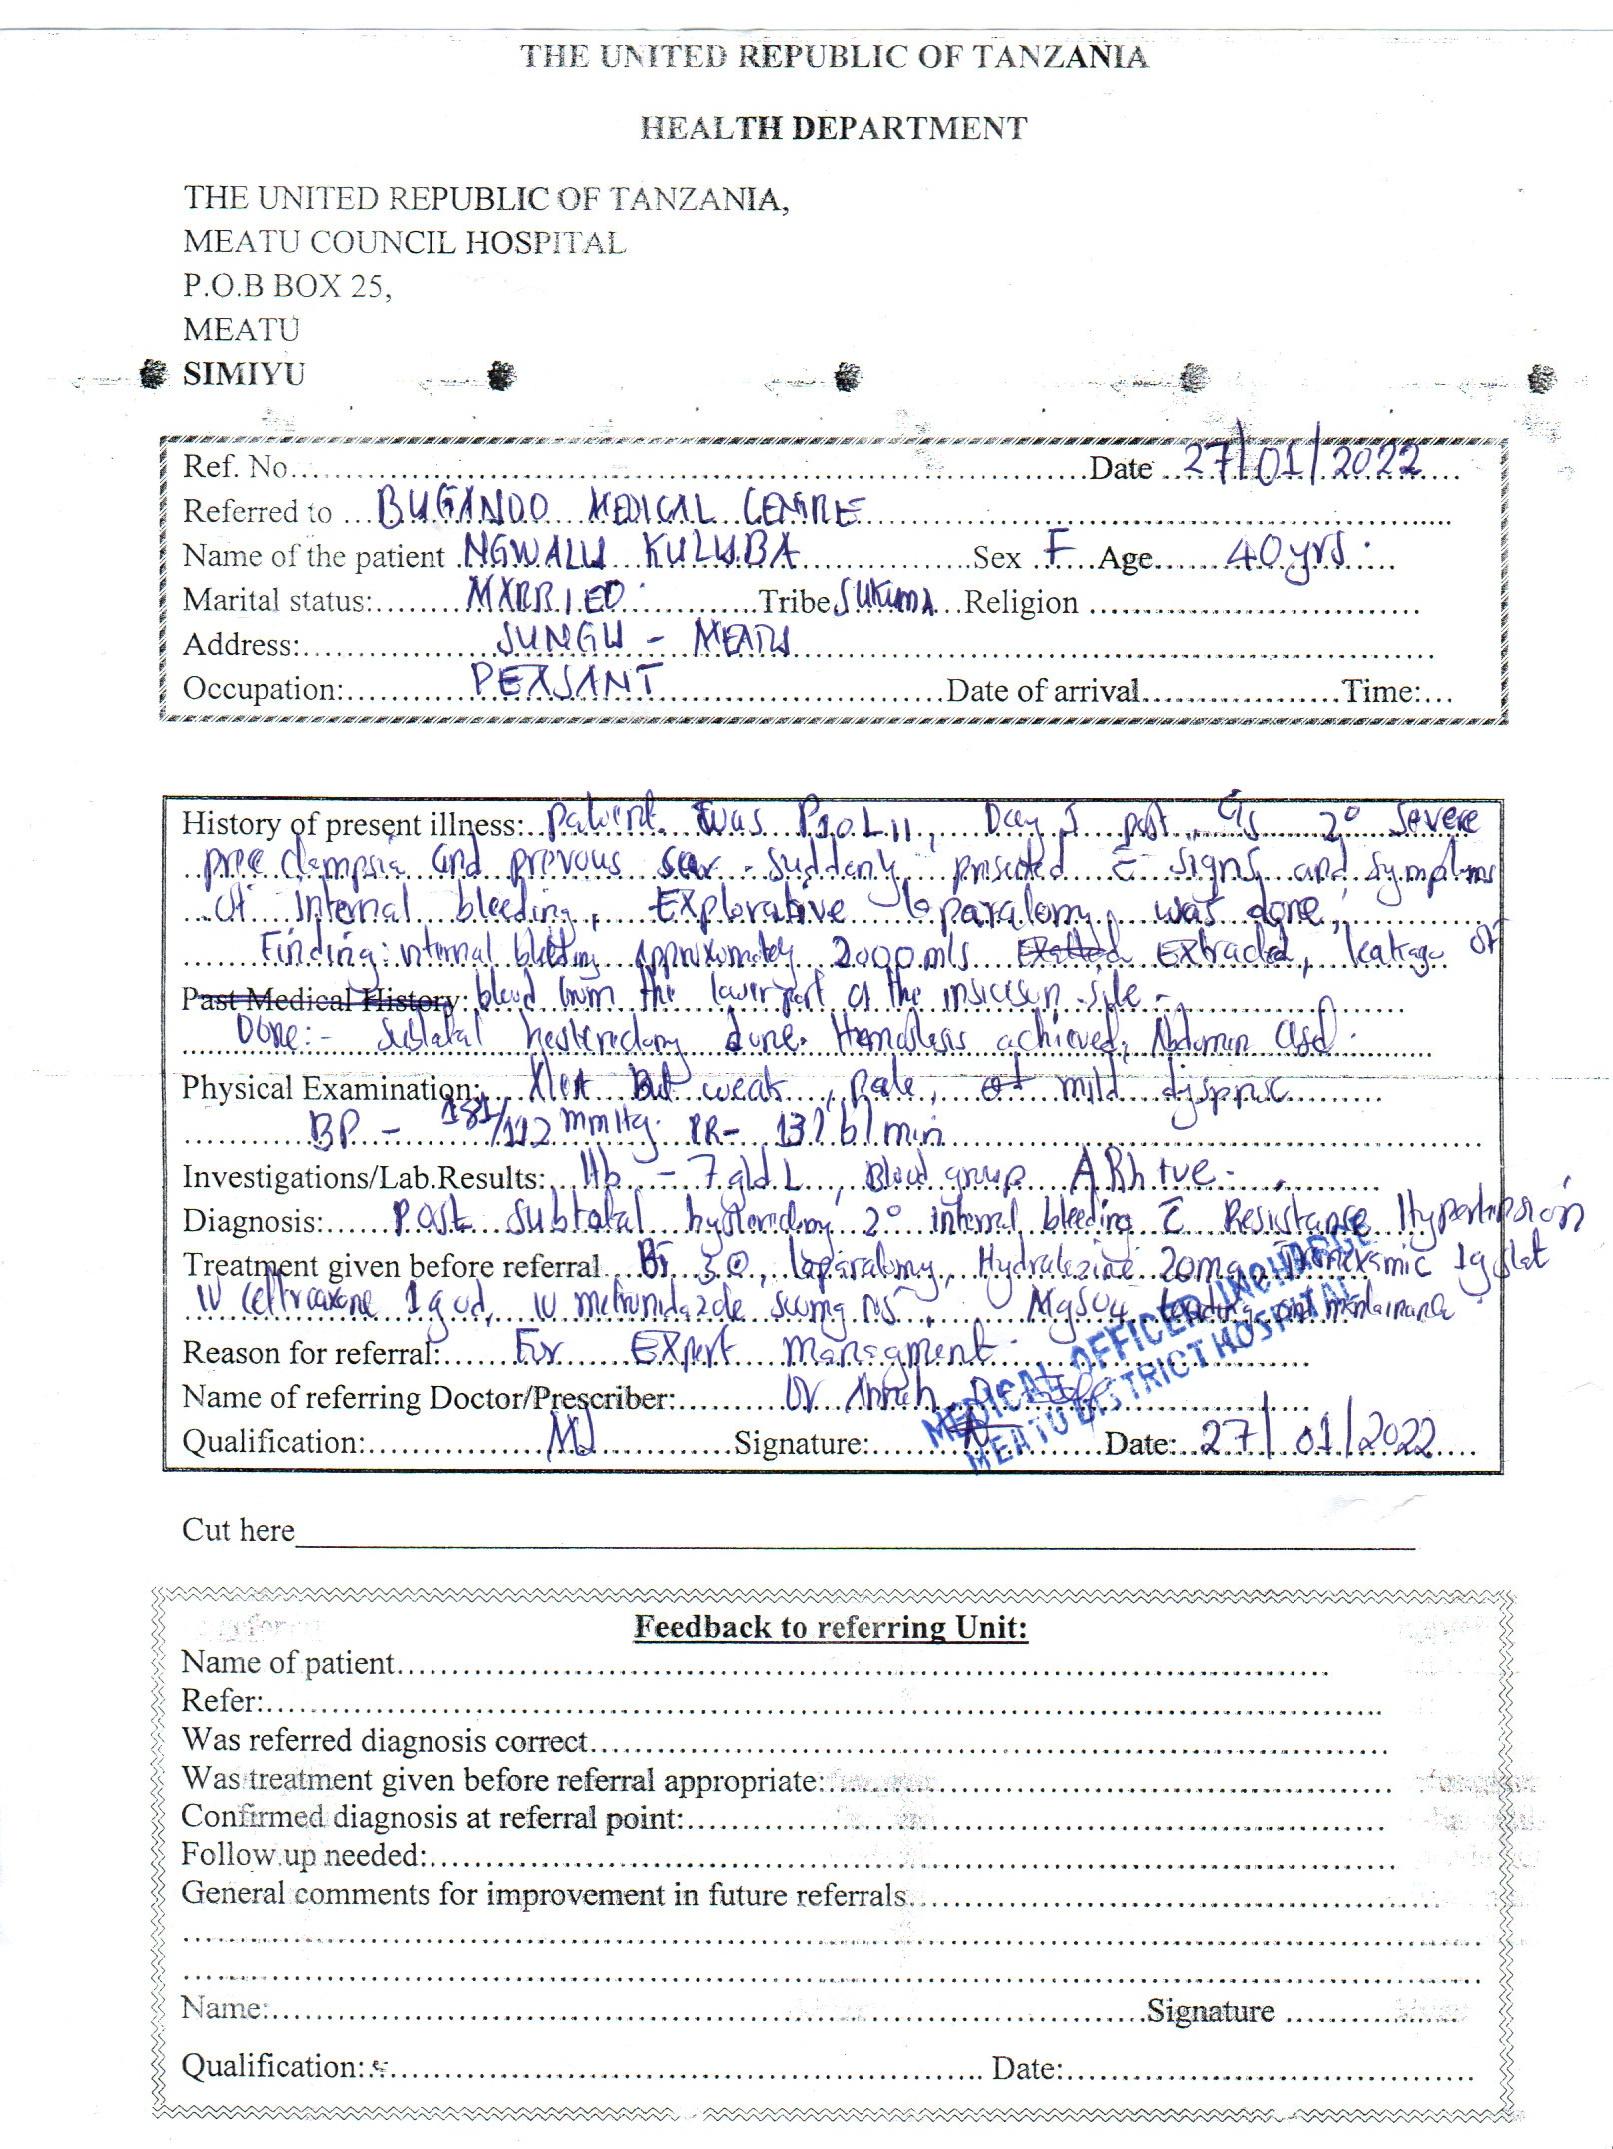 THE UNITED REPUBLIC OF TANZANIA
HEALTH DEPARTMENT
THE UNITED REPUBLIC OF TANZANIA,
MEATU COUNCIL HOSPITAL
P.O.B BOX 25,
MEATU
SIMIYU
Ref. No. Date 27/01/2022
Referred to BUGANDO MEDICAL CENTRE
Name of the patient NGWALU KULUBA Sex F Age 40yrs
Marital status: MARRIED Tribe SUKUMA Religion
Address: SUNGU - MEATU
Occupation: PEASANT Date of arrival Time:
History of present illness: patient was P10L11, Day 5 post C/s 2° severe
pree clampsia and prevous scar - suddenly presented c̄ signs and symptoms
of internal bleeding, Explorative laparatomy was done,
Finding: internal bleeding approximately 2000mls Extracted, leakage of
Past Medical History: blood from the lower part of the insicison site -
Done:- Subtatal done. Hemostasis achieved, Abdomen
Physical Examination: Alert But weak, pale, mild dyspnic
BP - 181/112 mmHg. PR- 132 b/min
Investigations/Lab.Results: Hb - 7 g/dL, Blood group A Rh +ve -
Diagnosis: Post subtotal 2° internal bleeding c̄ Resistance Hypertension
Treatment given before referral BT 3 , laparatomy, Hydralezine 20mg, 1g stat
IV 1g od, IV metronidazole 500mg MgSO4 loading and maintainance
Reason for referral: For Expert managment
Name of referring Doctor/Prescriber: Dr
Qualification: MD Signature: Date: 27/01/2022
MEDICAL OFFICER INCHARGE
MEATU DISTRICT HOSPITAL
Cut here
Feedback to referring Unit:
Name of patient
Refer:
Was referred diagnosis correct
Was treatment given before referral appropriate:
Confirmed diagnosis at referral point:
Follow up needed:
General comments for improvement in future referrals
Name: Signature
Qualification: Date: